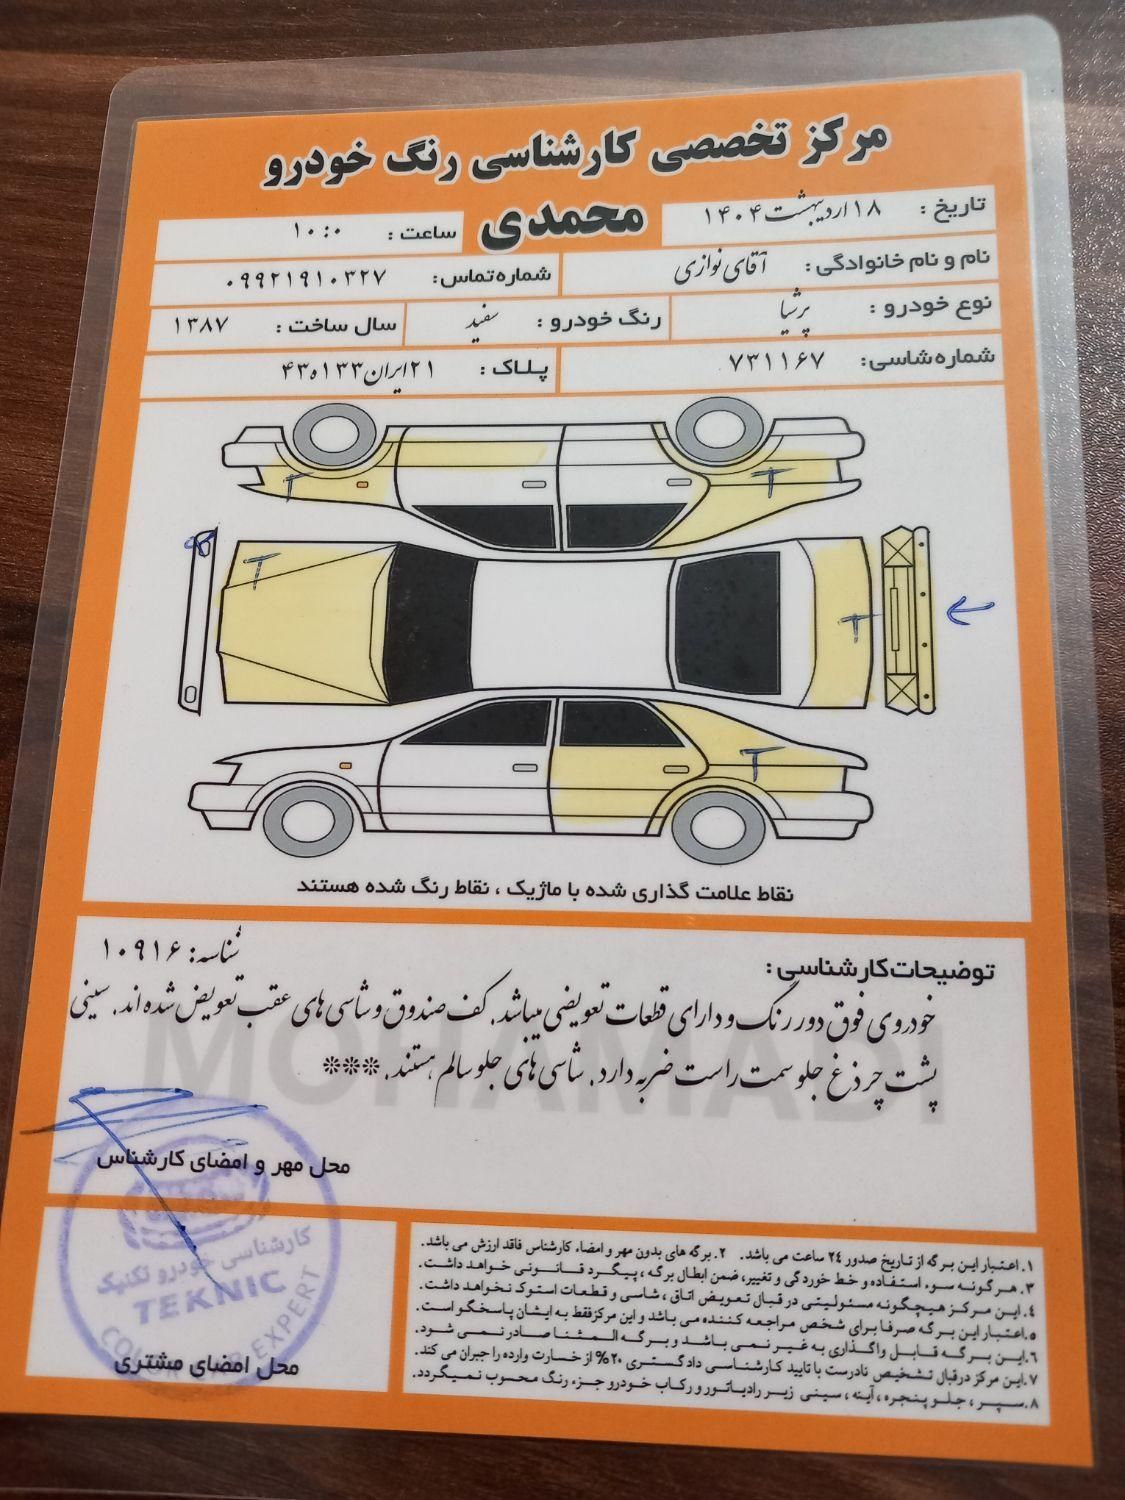 مرکز تخصصی کارشناسی رنگ خودرو
محمدی
تاریخ : ۱۸ اردیبهشت ۱۴۰۴
ساعت : ۱۰:۰
نام و نام خانوادگی : آقای نوازی
شماره تماس: ۰۹۹۲۱۹۱۰۳۲۷
نوع خودرو : پرشیا
رنگ خودرو : سفید
سال ساخت : ۱۳۸۷
شماره شاسی: ۷۳۱۱۶۷
پلاک : ۲۱ایران۱۳۳ه۴۳
T
T
T
T
T
نقاط علامت گذاری شده با ماژیک ، نقاط رنگ شده هستند
توضیحات کارشناسی :
شناسه: ۱۰۹۱۶
خودروی فوق دور رنگ و دارای قطعات تعویضی میباشد. کف صندوق و شاسی های عقب تعویض شده اند. سینی
پشت چرذغ جلو سمت راست ضربه دارد. شاسی های جلو سالم هستند. ***
MOHAMADI
محل مهر و امضای کارشناس
کارشناسی خودرو تکنیک
TEKNIC
COLOR CAR EXPERT
محل امضای مشتری
۱. اعتبار این برگه از تاریخ صدور ۲۴ ساعت می باشد. ۲. برگه های بدون مهر و امضاء کارشناس فاقد ارزش می باشد.
۳. هر گونه سوء استفاده و خط خوردگی و تغییر، ضمن ابطال برگه ، پیگرد قانونی خواهد داشت.
۴. این مرکز هیچگونه مسئولیتی در قبال تعویض اتاق ، شاسی و قطعات استوک نخواهد داشت.
۵. اعتبار این برگه صرفا برای شخص مراجعه کننده می باشد و این مرکز فقط به ایشان پاسخگو است.
۶. این برگه قابل واگذاری به غیر نمی باشد و برگه المثنا صادر نمی شود.
۷. این مرکز درقبال تشخیص نادرست با تایید کارشناسی دادگستری ۲۰% از خسارت وارده را جبران می کند.
۸. سپر ، جلو پنجره ، آینه ، سینی زیر رادیاتور و رکاب خودرو جزء رنگ محسوب نمیگردد.